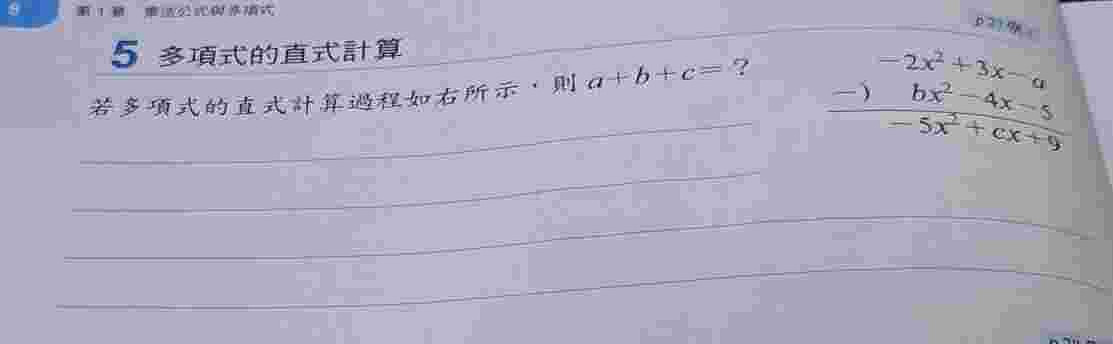 8
第1章 乘法公式與多項式
5 多項式的直式計算
若多項式的直式計算過程如右所示，則 a+b+c=？
-2x²+3x-a
-) bx²-4x-5
-5x²+cx+9